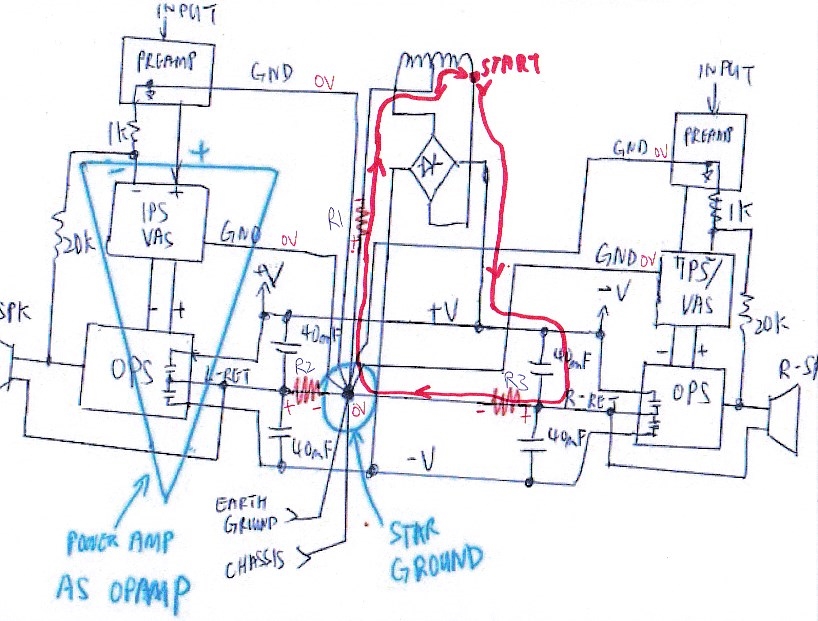 INPUT
PREAMP
GND
0V
START
INPUT
PREAMP
GND
0V
1K
+
-
-
+
1K
R1
+
IPS
VAS
20K
GND
0V
GND
0V
IPS/
VAS
+V
-V
20K
SPK
+V
40mF
40mF
-
+
-
+
OPS
L-RET
R2
+
-
0V
R3
-
+
R-RET
OPS
R-S
40mF
40mF
-V
EARTH
GROUND
CHASSIS
STAR
GROUND
POWER AMP
AS OPAMP